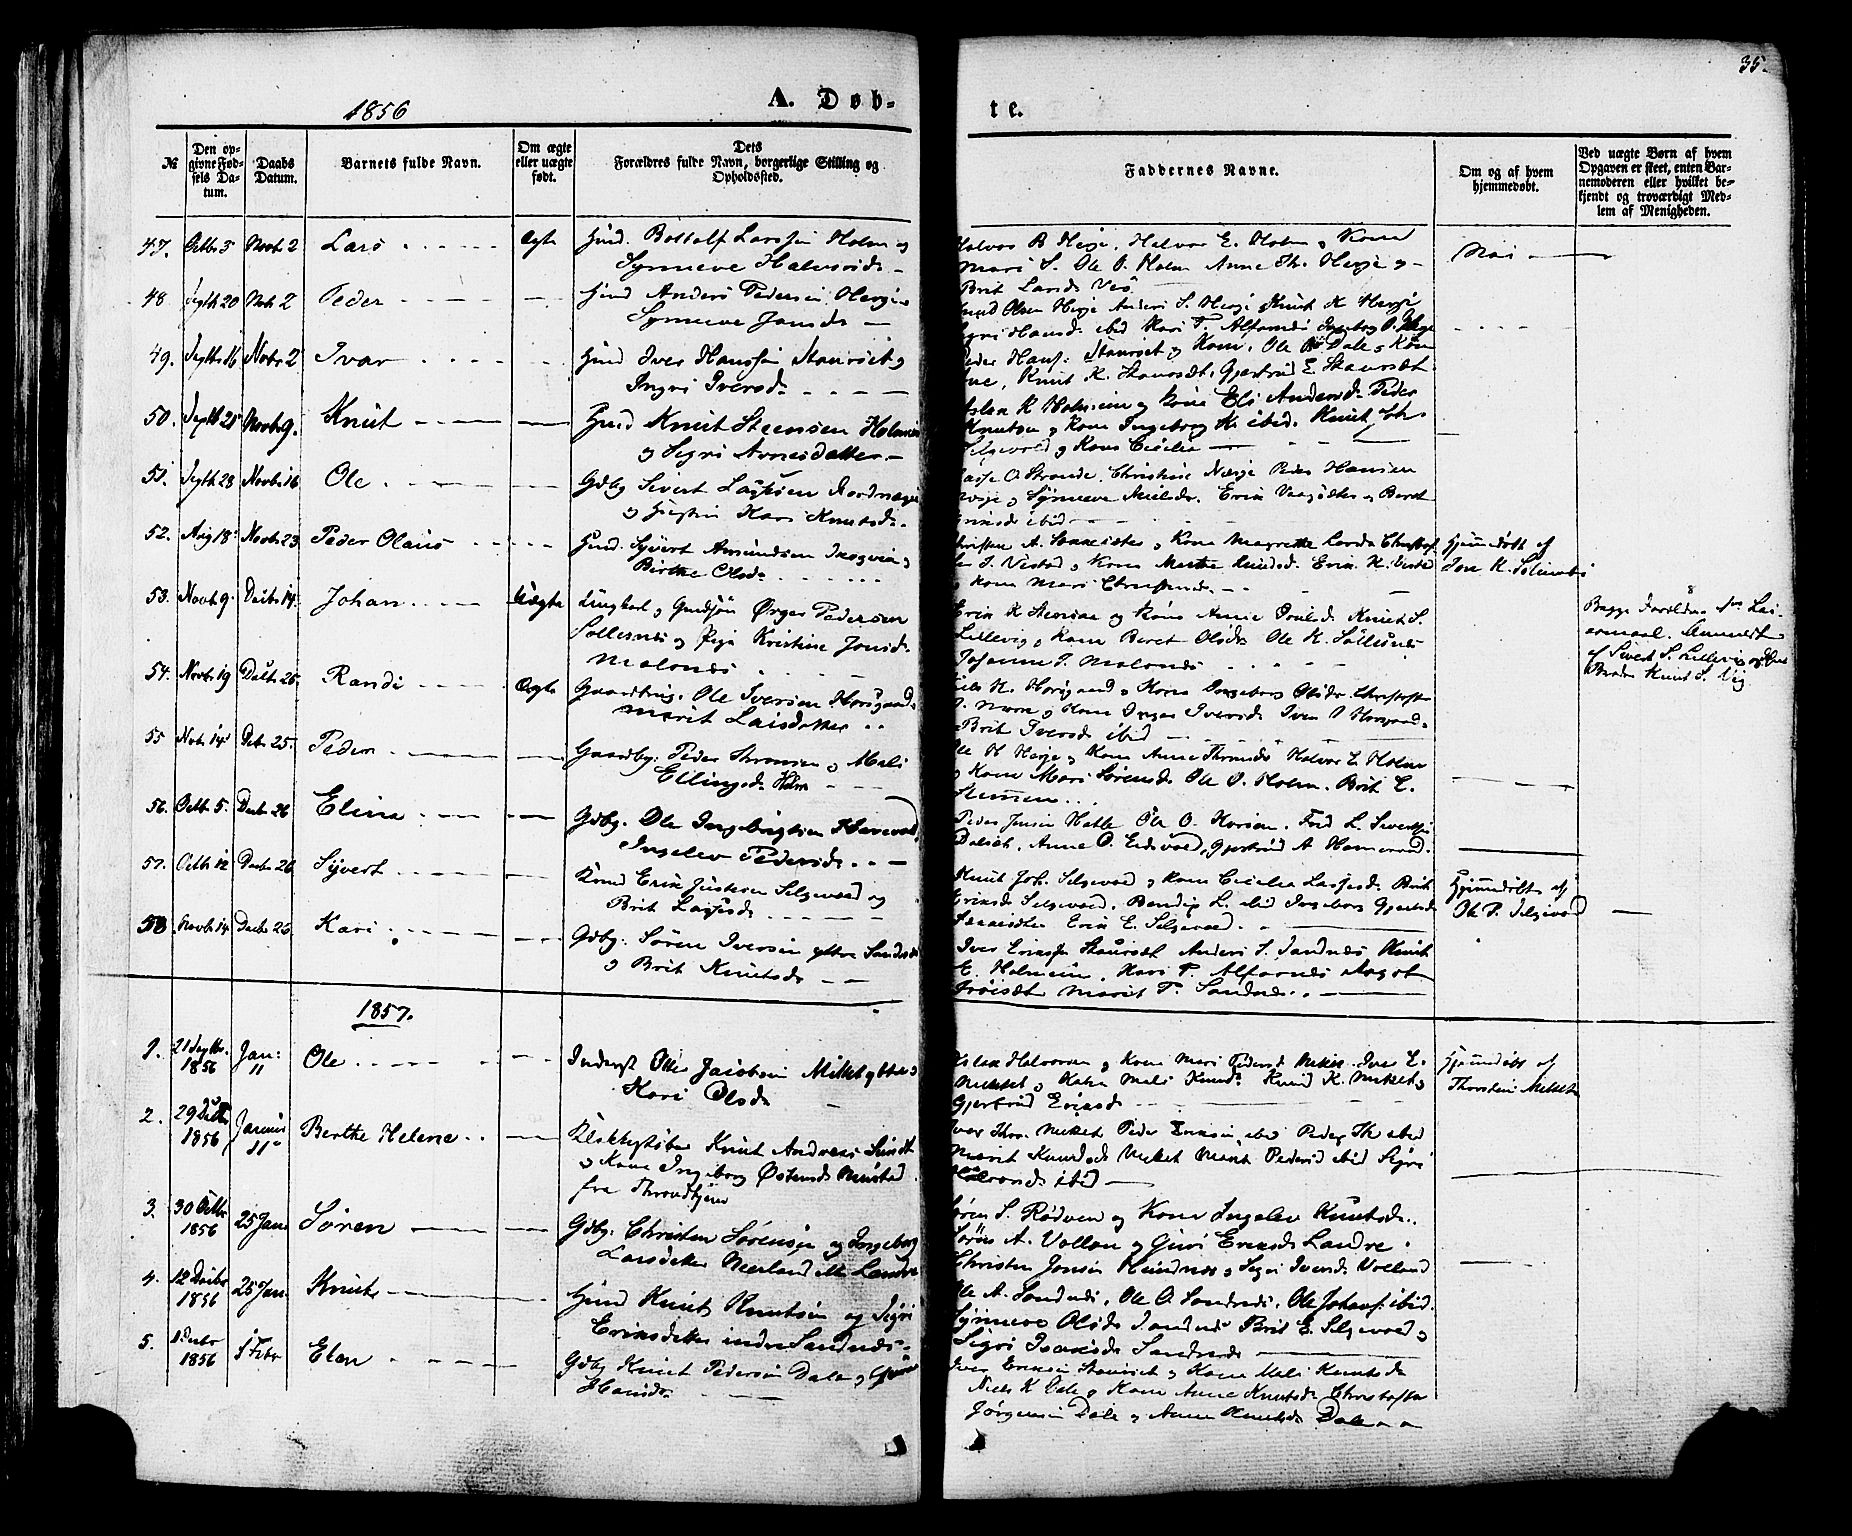 35.
1856
A. Døb-
te.
№
Den op-
givne Fød-
sels Da-
tum.
Daabs
Datum.
Barnets fulde Navn.
Om ægte
eller uægte
født.
Dets
Forældres fulde Navn, borgerlige Stilling og
Opholdssted.
Faddernes Navne.
Om og af hvem
hjemmedøbt.
Ved uægte Børn af hvem
Opgaven er skeet, enten Bar-
nemoderen eller hvilket be-
kjendt og troværdigt Med-
lem af Menigheden.
47. Octbr 5 Novbr 2 Lars Ægte Huud. Bottolf Larssen Holm og
Synneve Halvorsd.
Halvor B Herje, Halvor E. Holm og Kone
Mari S. Ole O. Holm Anne Th. Herje og
Brit Larsd. Veø
Nei
48. Septbr 20 Novbr 2 Peder
Huud Anders Pedersen Herje
Synneve Jonsd.
Knud Olsen Herje Anders S. Herje Knut K Herje
Hansd. ibid Kari P. Alfarnes Ingeborg O. Herje
49. Septbr 16 Novbr 2 Ivar
Huud Iver Hanssen Staursæt og
Ingri Iversd.
Peder Hans: Staursæt og Kone, Ole Dale og Kone
Knut K. Staursæt. Gjertrud E. Staursæt.
50. Septbr 28 Novbr 9. Knut
Huud Knut Steensen Holmem
og Sigri Arnesdatter
K Holmem og Kone Eli Andersd. Peder
Knutsen og Kone Ingeborg K. ibid. Knut Joh.
Selgevold og Kone Cicilia
51. Septbr 28 Novbr 16 Ole
Gdbg Sivert Lassesen Nordnærje
og Hustru Kari Knutsd.
Lasse O Strande. Christine Nærje Peder Hansen
og Synneve Nielsdr. Erik Vaagsæter og Beret
Eriksd ibid
52. Aug 18 Novbr 23 Peder Olaus
Huud. Syvert Amundsen Skogven og
Birthe Olsd.
Christen A. Sæter og Kone Magrethe Larsd. Christof-
fer S. Vestad og Kone Marthe Knudsd. Erik K. Vestad
og Kone Mari Christensd.
Hjemmedøbt af
Jon K. Solemsli
53. Novbr 9. Decbr 14. Johan Uægte
Ungkarl og Gaardsøn Ørger Pedersen
Sollesnes og Pige Kristine Jonsd.
Malones
Erik K Stensæt og Kone Anne Poulsd. Knut S.
Lillevig og Kone Beret Olsdr. Ole K. Søllesnes
Johanne P. Malones
Begge Forældres 1ste Lei-
ermaal. Anmeldt
af Sivert S. Lillevig og hans
Broder Knut S. Vig
54. Novbr 19 Decbr 25. Randi Ægte
Gaardbrug. Ole Iversen Horsgaard
Marit Larsdatter
Nils K. Horsgaard og Kone Ingeborg Olsdr. Christoffer
P. Moen og Kone Inger Iversd. Iver P Horsgaard
Brit Iversd. ibid
55 Novbr 14 Decbr 25. Peder
Gaardbg: Peder Thronsen og Mali
Ellingsd Holm
Ole H Herje og Kone Anne Thronsd. Halvor E. Holm
og Kone Mari Sørensd. Ole O. Holm. Brit E.
Stennem
56. Octbr 5. Decbr 26 Elina
Gdbg. Ole Ingebrigtsen Hamrevold
Ingelev Pedersd.
Peder Jensen Hatle Ole O. L. Sivertsen
Dalset, Anne O. Eidsvold, Gjertrud A Hamrevold.
57. Octbr 12 Decbr 26 Syvert
Huud Erik Justesen Selgevold og
Brit Lassesd.
Knut Joh. Selgevold og Kone Cicilia Lassesd. Brit
Eriksd. Selgevold, Bendix L. ibid Ingeborg Gjertsd.
Erik E. Selgevold.
Hjemmedøbt af
Ole P. Selgevold
58 Novbr 14 Decbr 26 Kari
Gdbg. Søren Iversen yttre Sandnes
og Brit Knutsd.
Iver Eriksen Staursæt Anders S. Sandnes Knut
E. Holmem, Kari P. Alfarnes Aagot
Marit P. Sandnes
1857.
1. 21 Septbr. 1856 Jan: 11 Ole
Inderst Ole Jacobsen Mittet yttre og
Kari Olsd.
Halvorsen og Kone Mari Pedersd Mittet. Iver E.
Mittet og Kone Mali Knudsd. Knud K. Mittet og
Gjertrud Eriksd
Hjemmedøbt af
Thorstein Mittet
2. 29 Decbr 1856 Januar 11 Berthe Helene
Klokkestøber Knut Andreas Sundt
og Kone Ingeborg Østensd Mustad
fra Throndhjem
Iver Thor. Mittet Peder Eriksen ibid Peder Th ibid
Marit Knudsd Mittet Marit Pedersd ibid Sigri
Halvorsd. ibid
3. 30 Octbr 1856 25 Jan Søren
Gdbg: Christen Sørensen og Ingeborg
Larsdatter Nerland ell. Landre
Søren S. Rødven og Kone Ingelev Knutsd.
Søren A. Vollan og Guri Eriksd. Landre.
Christen Jonsen Hundnes og Sigri Iversd Volland
4. 12 Decbr 1856 25 Jan. Knut
Huud Knut Knutsen og Sigri
Eriksdatter indre Sandnes
Ole A. Sandnes, Ole O. Sandnes, Ole Johans: ibid.
Synneve Olsd. Sandnes Brit E. Selgevold og
Sigri Iversd Sandnes
5. Decbr 1856 1 Febr Elen
Gdbg Knut Pedersen Dale og
Hansdr.
Iver Eriksen Staursæt og Kone Mali Knutsd.
Niels K Dale og Kone Anne Knutsd. Christoffer
Jørgensen Dale og Anne Knutsd. Dale